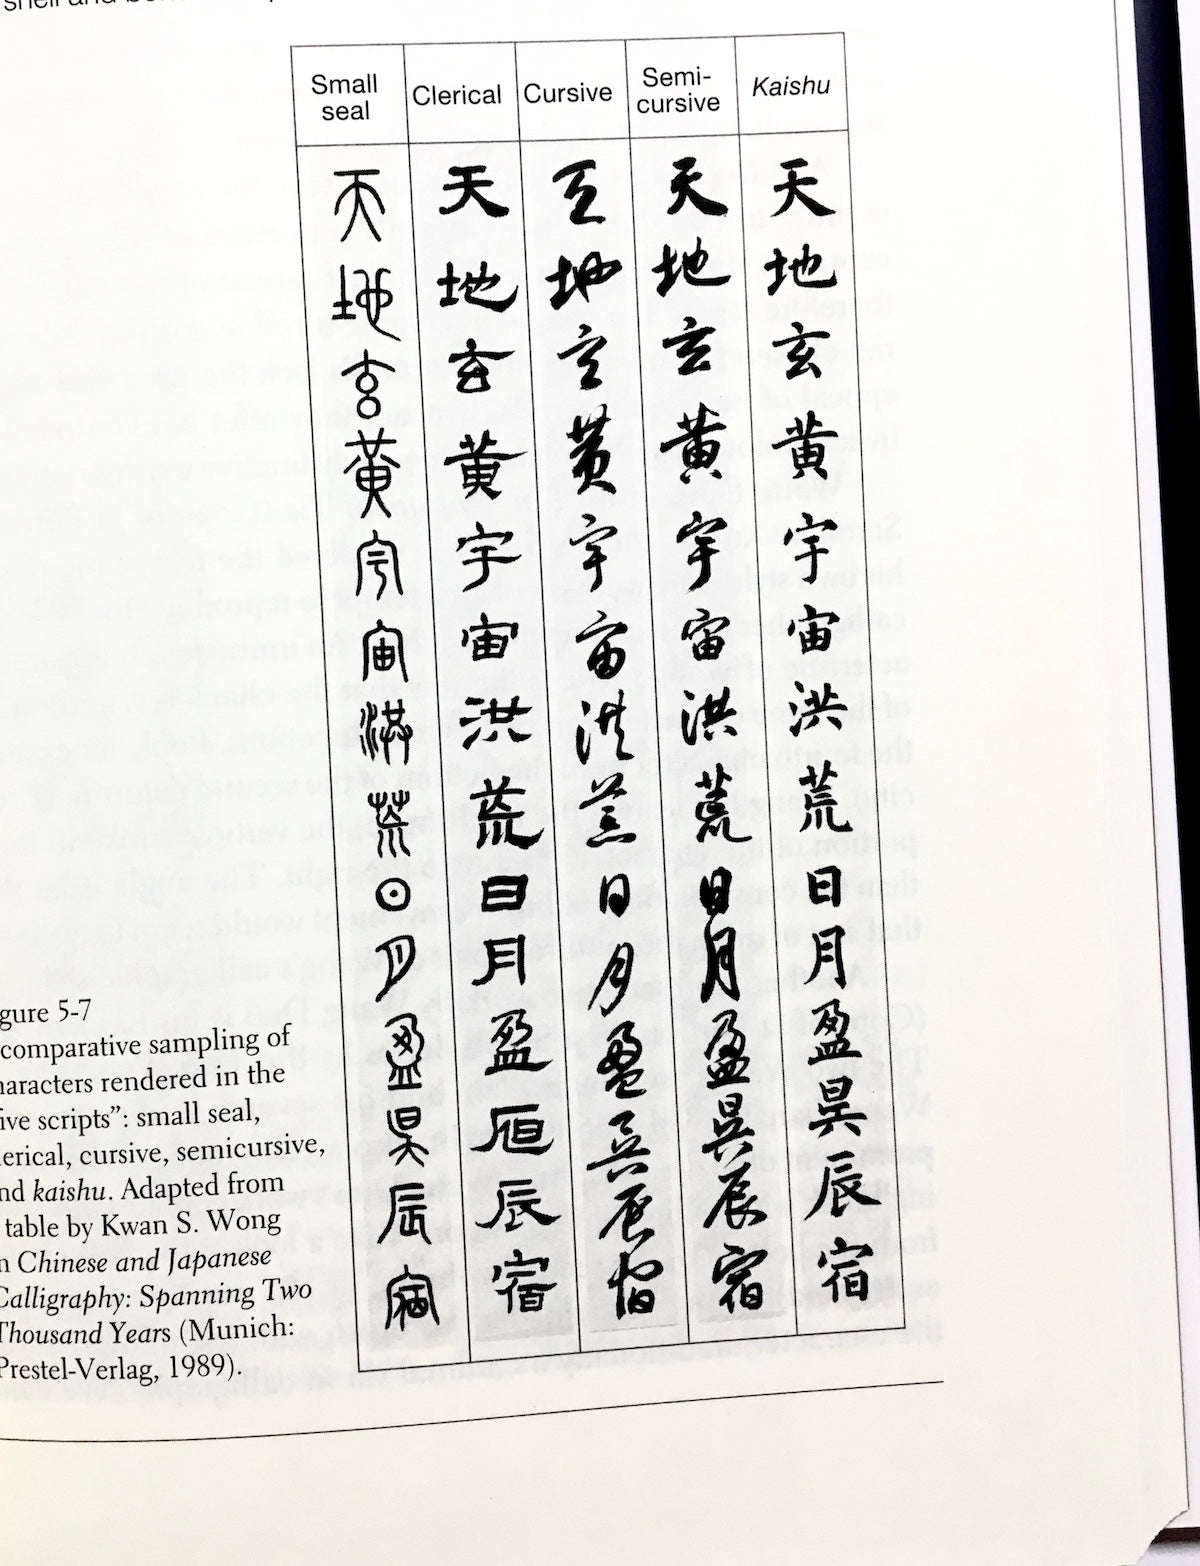 shell and
Small seal Clerical Cursive Semi-cursive Kaishu
天 天 天 天 天
地 地 地 地 地
玄 玄 玄 玄 玄
黃 黃 黃 黃 黃
宇 宇 宇 宇 宇
宙 宙 宙 宙 宙
洪 洪 洪 洪 洪
荒 荒 荒 荒 荒
日 日 日 日 日
月 月 月 月 月
盈 盈 盈 盈 盈
昃 昃 昃 昃
辰 辰 辰 辰 辰
宿 宿 宿 宿 宿
gure 5-7
comparative sampling of
haracters rendered in the
ive scripts”: small seal,
lerical, cursive, semicursive,
nd kaishu. Adapted from
table by Kwan S. Wong
n Chinese and Japanese
Calligraphy: Spanning Two
Thousand Years (Munich:
Prestel-Verlag, 1989).